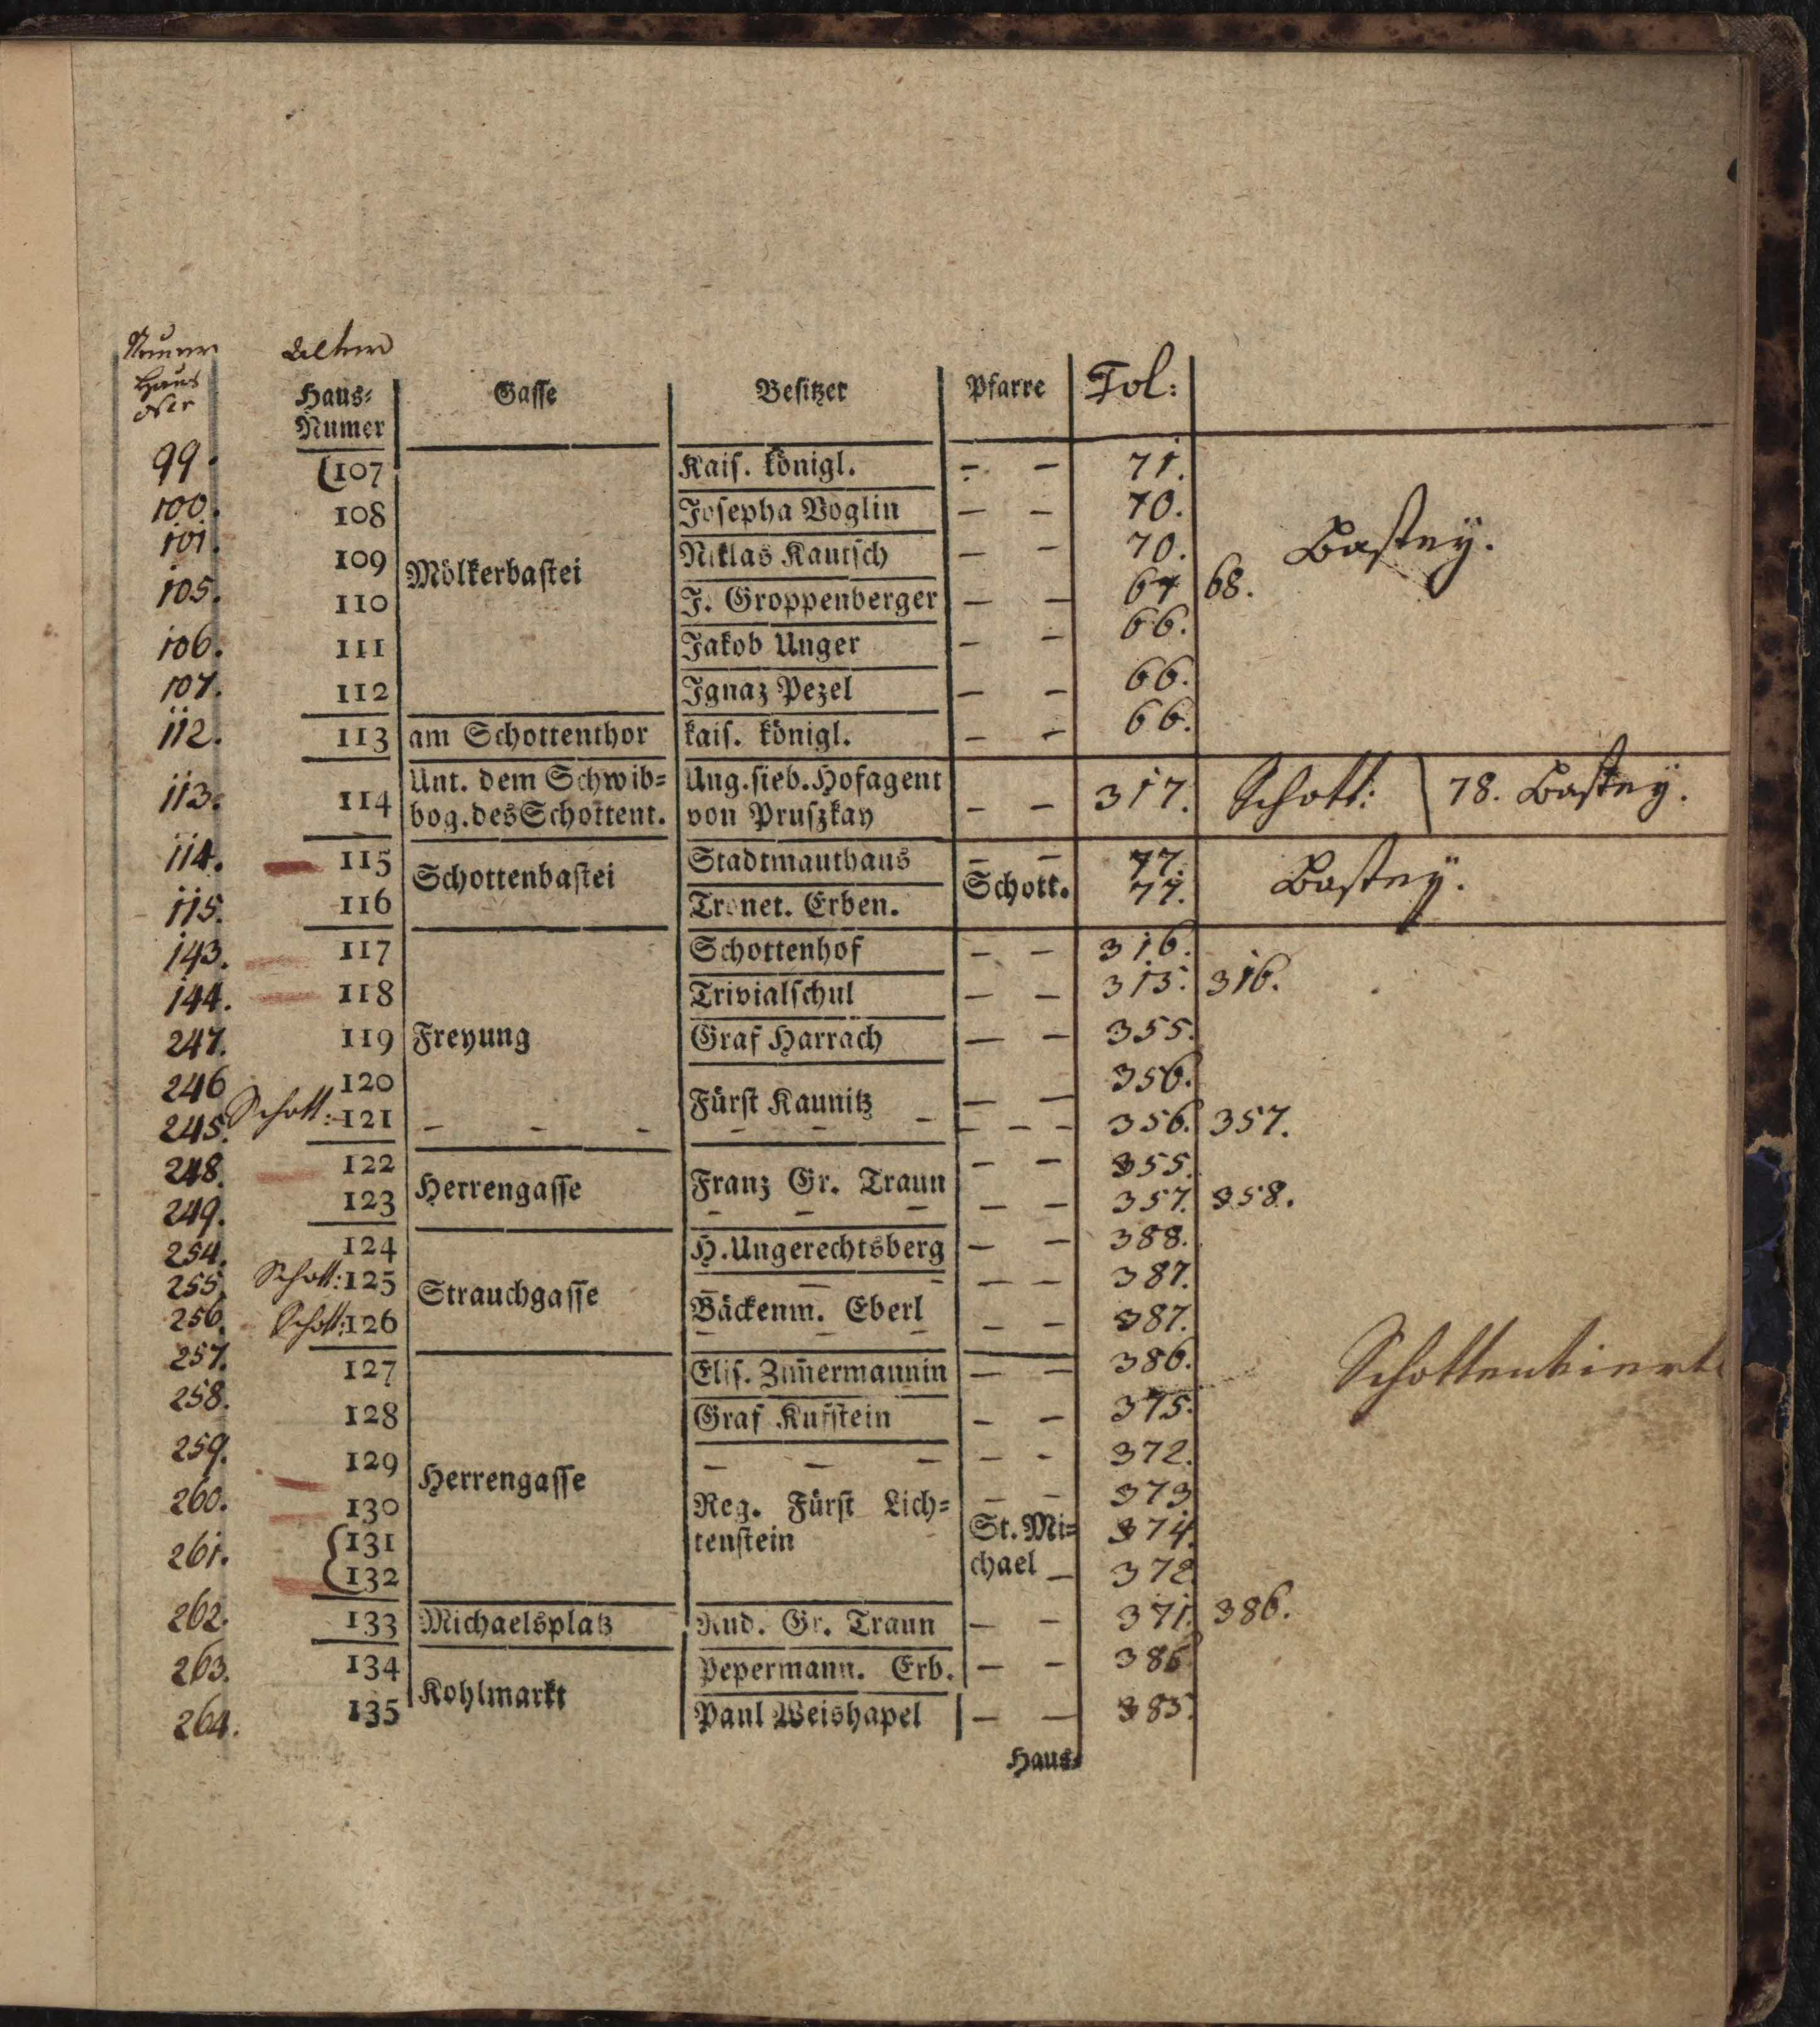 Neuer Alter
Haus Haus= Gasse Besitzer Pfarre Fol:
Nro Numer
99. 107 Kais. königl. - - 71.
100. 108 Josepha Voglin - - 70.
101. 109 Mölkerbastei Niklas Kautsch - - 70. Bastey.
105. 110 J. Groppenberger - - 67 68.
106. 111 Jakob Unger - - 66.
107. 112 Ignaz Pezel - - 66.
112. 113 am Schottenthor kais. königl. - - 66.
113. 114 Unt. dem Schwib= Ung. sieb. Hofagent - - 317. Schott: 78. Bastey.
bog. des Schottent. von Pruszkay
114. 115 Schottenbastei Stadtmauthaus - - 77. Bastey.
115. 116 Tronet. Erben. Schott. 77.
143. 117 Schottenhof - - 316.
144. 118 Trivialschul - - 315. 316.
247. 119 Freyung Graf Harrach - - 355.
246 120 Fürst Kaunitz - - 356.
245. Schott: 121 - - - - - - - - - 356. 357.
248. 122 Herrengasse Franz Gr. Traun - - 355.
249. 123 - - - - - 357. 358.
254. 124 H. Ungerechtsberg - - 388.
255. Schott: 125 Strauchgasse - - - - - 387.
256. Schott: 126 Bäckenm. Eberl - - 387.
- - -
257. 127 Elis. Zim̄ermannin - - 386.
258. 128 Graf Kufstein - - 375.
259. 129 Herrengasse - - - - - 372.
260. 130 Reg. Fürst Lich= - - 373
261. 131 tenstein St. Mi= 374.
132 chael - 372
262. 133 Michaelsplatz Rud. Gr. Traun - - 371. 386.
263. 134 Kohlmarkt Pepermann. Erb. - - 386
264. 135 Paul Weishapel - - 385.
Haus=